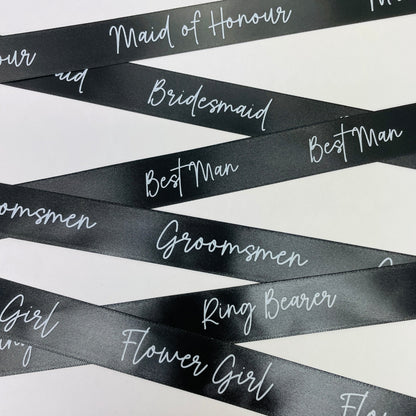 our
Maid of Honour
Ma
aid
Bridesmaid
Best Man
Best Man
oomsmen
Groomsmen
G
Ring Bearer
Girl
ing
Flower Girl
Flo